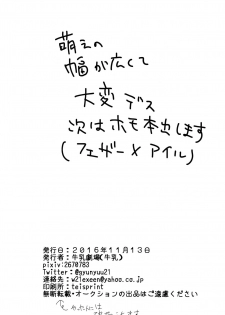 萌えの
幅が広くて
大変デス
次はホモ本出します
(フェザー×アイル)
発行日：2016年11月13日
発行者：牛乳劇場(牛乳)
pixiv:2670783
Twitter：@gyunyuu21
連絡先：w21exeen@yahoo.co.jp
印刷所：taisprint
無断転載・オークションの出品はご遠慮ください